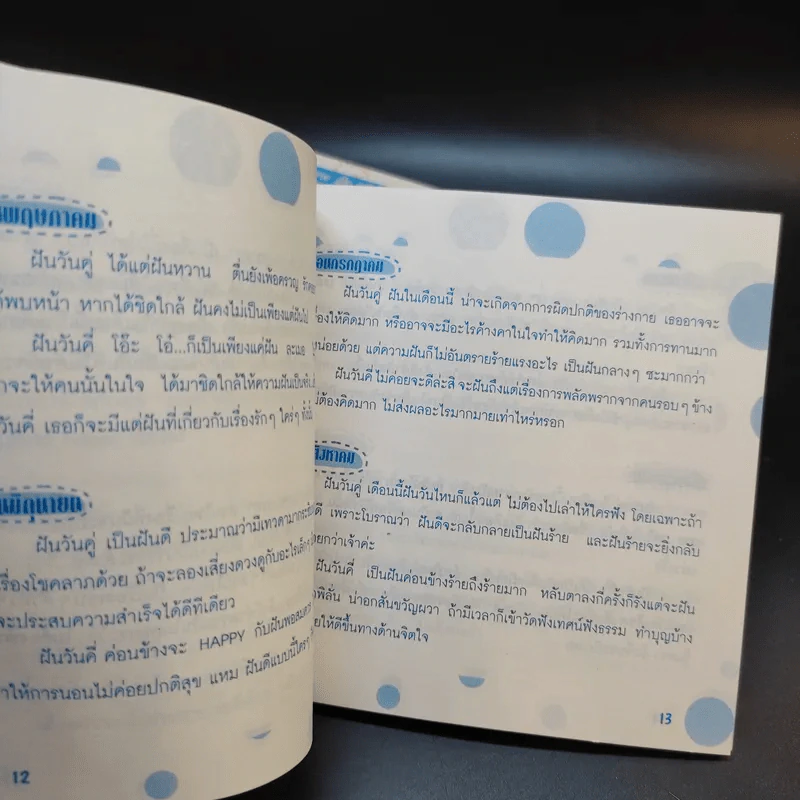 นพฤษภาคม
ฝันวันคู่ ได้แต่ฝันหวาน ตื่นยังเพ้อครวญ
ด้พบหน้า หากได้ชิดใกล้ ฝันคงไม่เป็นเพียงแต่ฝันไป
ฝันวันคี่ โอ๊ะ โอ๋...ก็เป็นเพียงแค่ฝัน ละเมอ
กจะให้คนนั้นในใจ ได้มาชิดใกล้ให้ความฝันเป็นจริง
วันคี่ เธอก็จะมีแต่ฝันที่เกี่ยวกับเรื่องรักๆ ใคร่ๆ ทั้งนั้น
นมิถุนายน
ฝันวันคู่ เป็นฝันดี ประมาณว่ามีเทวดามากระซิบ
เรื่องโชคลาภด้วย ถ้าจะลองเสี่ยงดวงดูกับอะไรเล็กๆ
จะประสบความสำเร็จได้ดีทีเดียว
ฝันวันคี่ ค่อนข้างจะ HAPPY กับฝันพอสมควร
าให้การนอนไม่ค่อยปกติสุข แหม ฝันดีแบบนี้ใครๆ
12
อนกรกฎาคม
ฝันวันคู่ ฝันในเดือนนี้ น่าจะเกิดจากการผิดปกติของร่างกาย เธออาจจะ
่องให้คิดมาก หรืออาจจะมีอะไรค้างคาในใจทำให้คิดมาก รวมทั้งการทานมาก
หน่อยด้วย แต่ความฝันก็ไม่อันตรายร้ายแรงอะไร เป็นฝันกลางๆ ซะมากกว่า
ฝันวันคี่ ไม่ค่อยจะดีล่ะสิ จะฝันถึงแต่เรื่องการพลัดพรากจากคนรอบๆ ข้าง
ม่ต้องคิดมาก ไม่ส่งผลอะไรมากมายเท่าไหร่หรอก
สิงหาคม
ฝันวันคู่ เดือนนี้ฝันวันไหนก็แล้วแต่ ไม่ต้องไปเล่าให้ใครฟัง โดยเฉพาะถ้า
ดี เพราะโบราณว่า ฝันดีจะกลับกลายเป็นฝันร้าย และฝันร้ายจะยิ่งกลับ
ยกว่าเจ้าค่ะ
ฝันวันคี่ เป็นฝันค่อนข้างร้ายถึงร้ายมาก หลับตาลงกี่ครั้งก็รังแต่จะฝัน
พิลั่น น่าอกสั่นขวัญผวา ถ้ามีเวลาก็เข้าวัดฟังเทศน์ฟังธรรม ทำบุญบ้าง
ยให้ดีขึ้นทางด้านจิตใจ
13